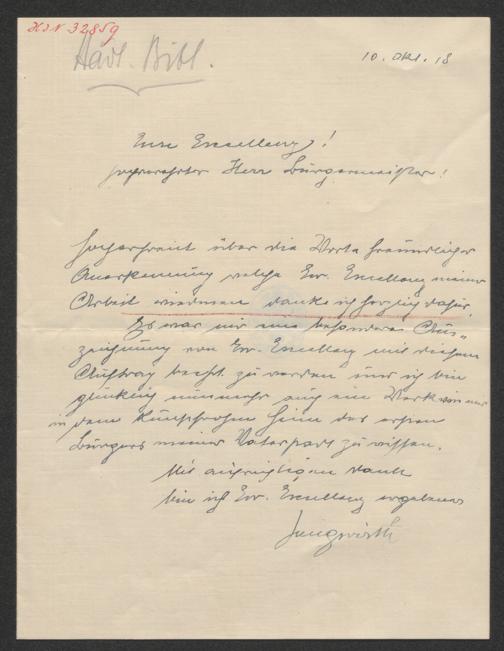 HIN 32859
Hdsl. Bibl.
10. Okt. 18
Eure Excellenz!
sehrverehrter Herr Bürgermeister!
Hocherfreut über die Worte freundlicher
Anerkennung welche Ew. Excellenz meiner
Arbeit widmen danke ich herzlich dafür.
Es war mir eine besondere Aus-
zeichnung von Ew. Excellenz mit diesem
Auftrag zu werden und ich bin
glücklich nunmehr auch ein Werk von mir
in dem Heim des ersten
Bürgers meiner Vaterstadt zu wissen.
Mit aufrichtigem Dank
bin ich Ew. Excellenz ergebener
Jungwirth